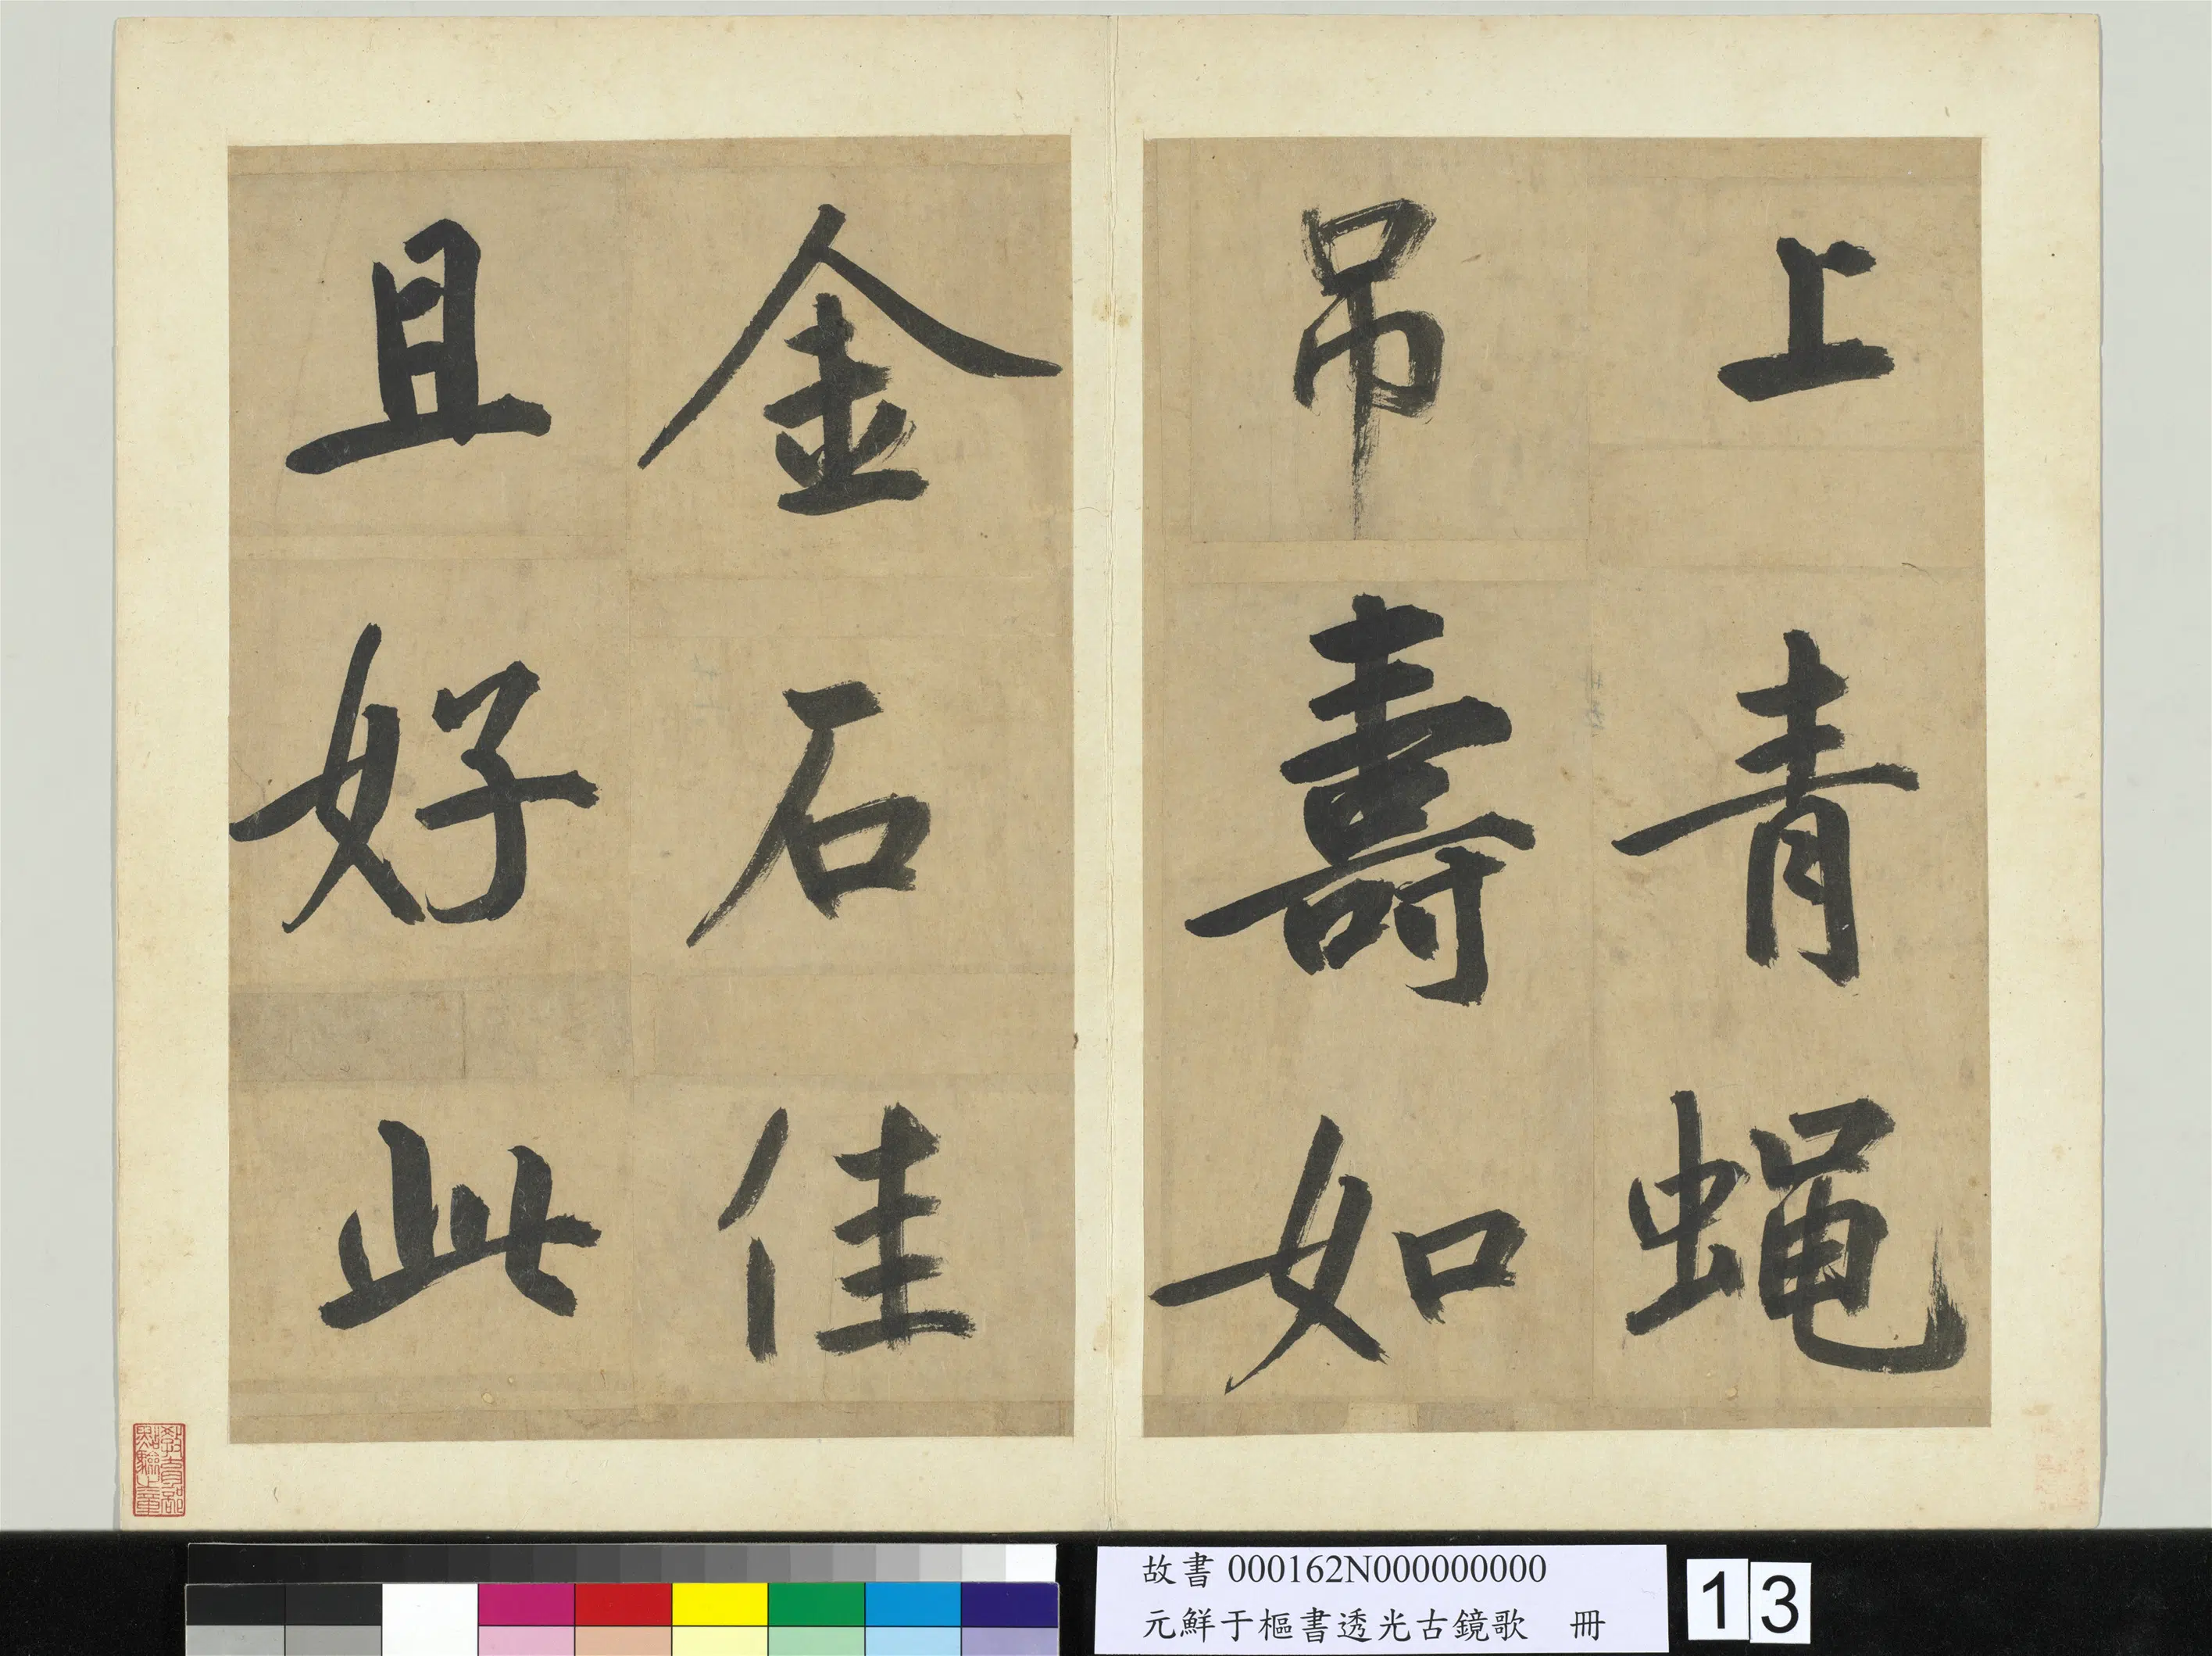 上青蝿
吊壽如
金石佳
且好此
教育部點驗之章
故書 000162N000000000
元鮮于樞書透光古鏡歌 冊
13